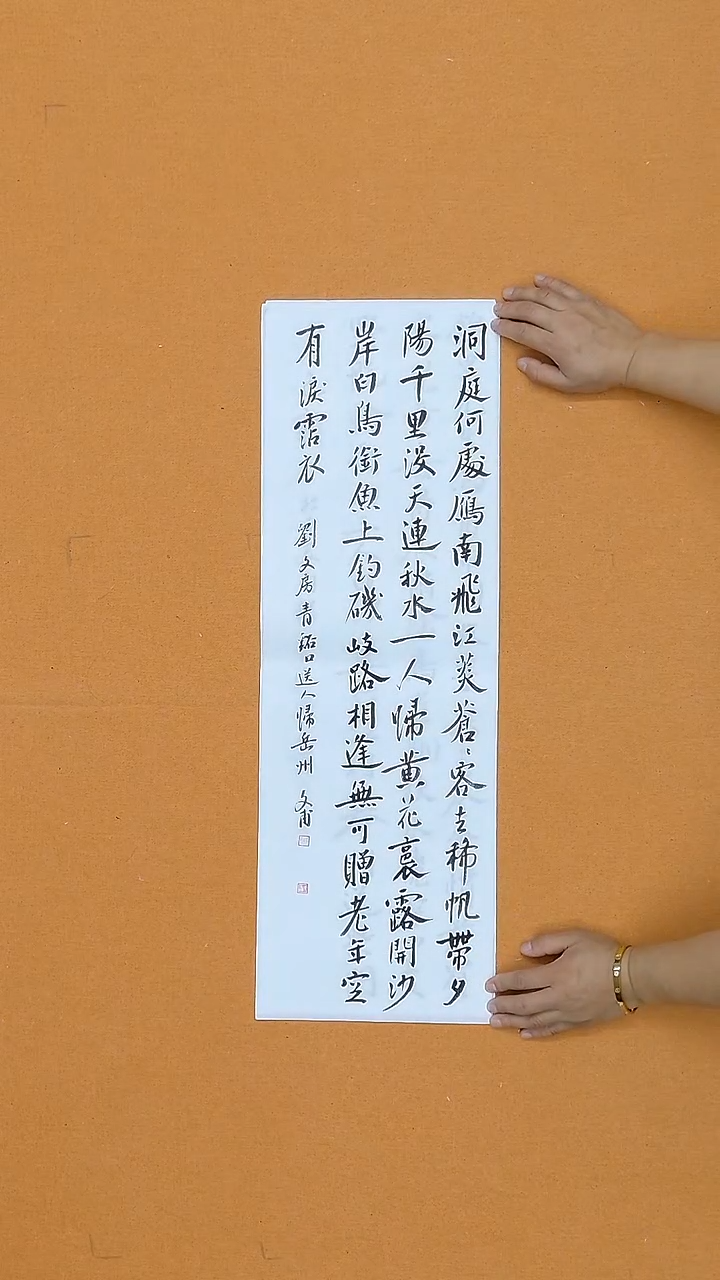 洞庭何處雁南飛江菼蒼〻客去稀帆帶夕
陽千里沒天連秋水一人歸黃花裛露開沙
岸白鳥銜魚上釣磯岐路相逢無可贈老年空
有淚霑衣 劉文房青谿口送人歸岳州